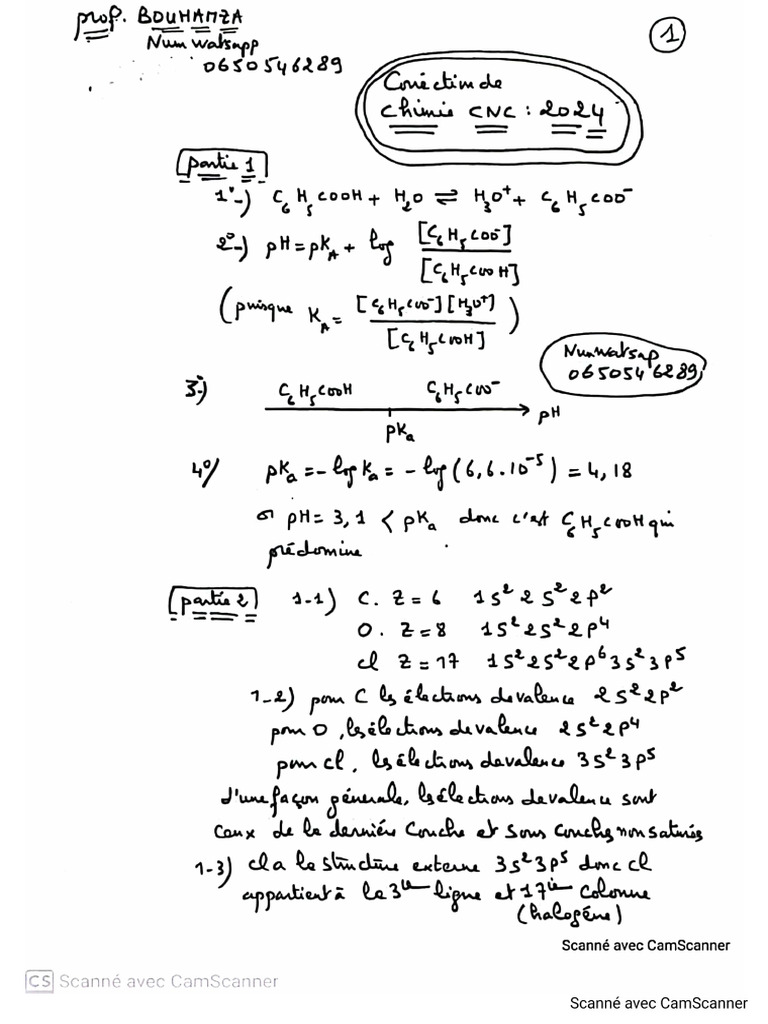 prof. BOUHAMZA
Num watsapp
0650546289
1
Corréction de
Chimie CNC : 2024
partie 1
1°-) C₆H₅COOH + H₂O ⇌ H₃O⁺ + C₆H₅COO⁻
2°-) pH = pK_A + log [C₆H₅COO⁻] / [C₆H₅COOH]
(puisque K_A = [C₆H₅COO⁻][H₃O⁺] / [C₆H₅COOH])
Num watsap
0650546289
3°-) C₆H₅COOH C₆H₅COO⁻
pH
pKa
4°/ pKa = - log Ka = - log (6,6.10⁻⁵) = 4,18
or pH = 3,1 < pKa donc c'est C₆H₅COOH qui
prédomine
partie 2 1-1) C. Z = 6 1s² 2s² 2p²
O. Z = 8 1s² 2s² 2p⁴
Cl Z = 17 1s² 2s² 2p⁶ 3s² 3p⁵
1-2) pour C les élections de valence 2s² 2p²
pour O, les élections de valence 2s² 2p⁴
pour Cl, les élections de valence 3s² 3p⁵
d'une façon générale, les élections de valence sont
ceux de la derniére couche et sous couches non saturés
1-3) Cl a la structure externe 3s² 3p⁵ donc Cl
appartient à la 3ième ligne et 17ième colonne
(halogéne)
Scanné avec CamScanner
CS Scanné avec CamScanner
Scanné avec CamScanner